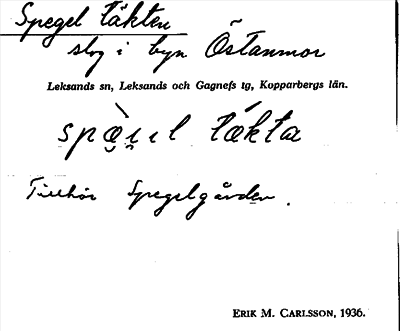 Spegel täkten
slog i byn Östanmor
Leksands sn, Leksands och Gagnefs tg, Kopparbergs län.
täkta
Tillhör Spegelgården.
ERIK M. CARLSSON, 1936.